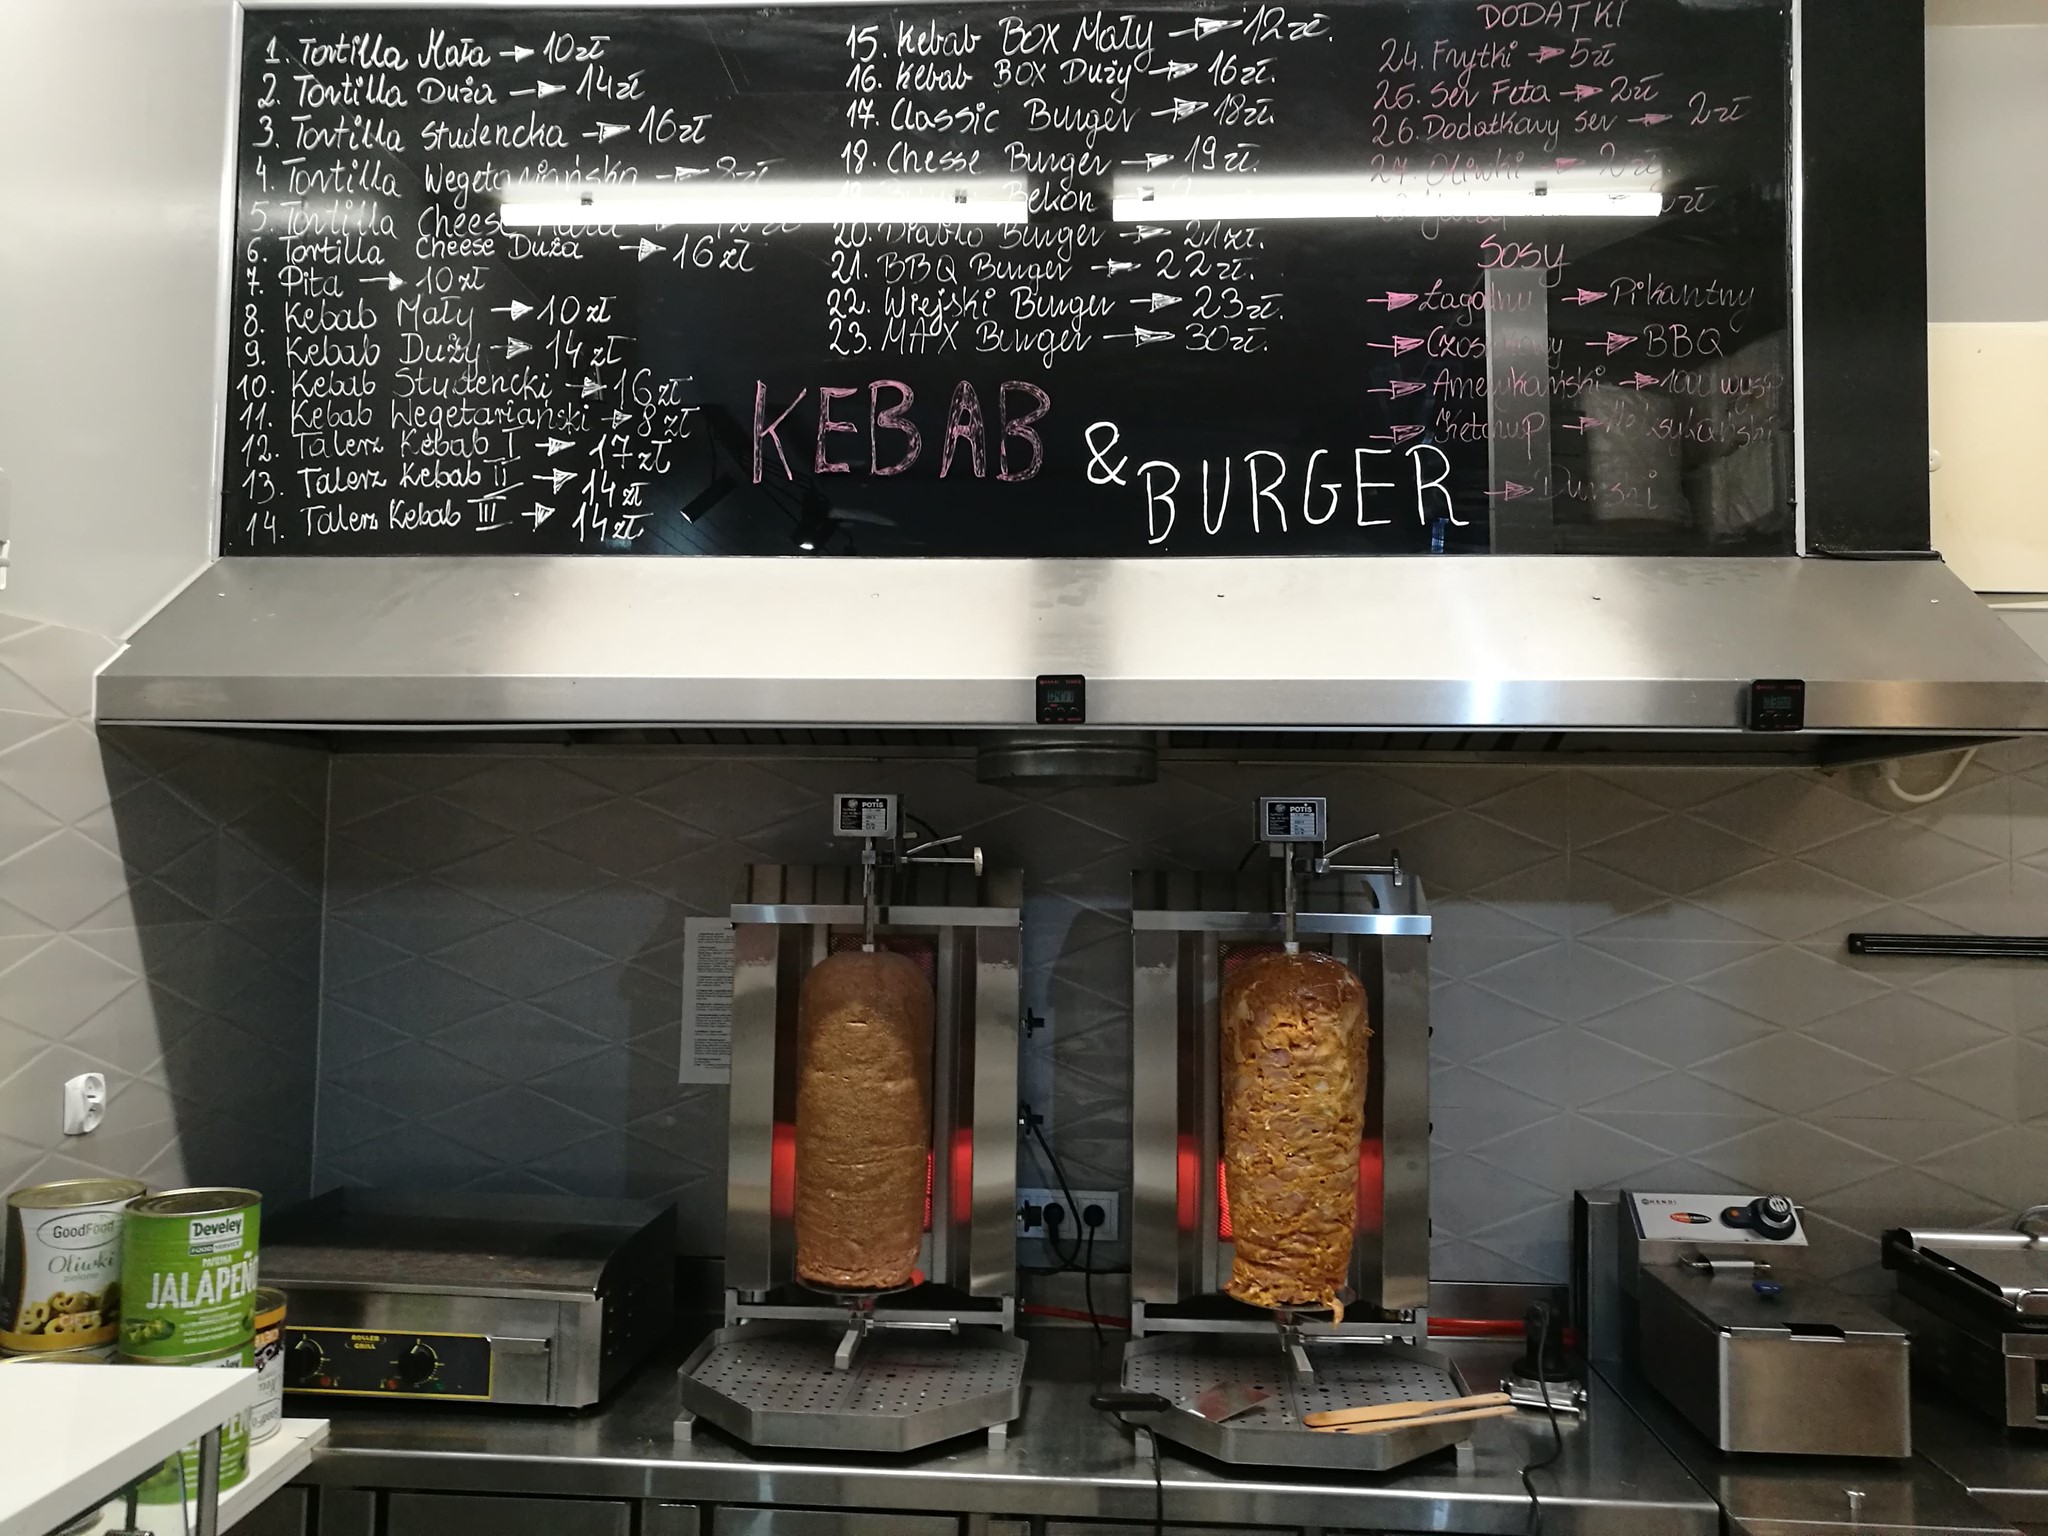 1. Tortilla Mała → 10zł
2. Tortilla Duża → 14zł
3. Tortilla Studencka → 16zł
4. Tortilla Wegetariańska → 8zł
5. Tortilla Cheese Mała → 12zł
6. Tortilla Cheese Duża → 16zł
7. Pita → 10zł
8. Kebab Mały → 10zł
9. Kebab Duży → 14zł
10. Kebab Studencki → 16zł
11. Kebab Wegetariański → 8zł
12. Talerz Kebab I → 17zł
13. Talerz Kebab II → 14zł
14. Talerz Kebab III → 14zł
15. Kebab BOX Mały → 12zł.
16. Kebab BOX Duży → 16zł.
17. Classic Burger → 18zł.
18. Chesse Burger → 19zł.
Bekon
20. Diablo Burger → 21zł.
21. BBQ Burger → 22zł.
22. Wiejski Burger → 23zł.
23. MAX Burger → 30zł.
DODATKI
24. Frytki → 5zł
25. Ser Feta → 2zł
26. Dodatkowy Ser → 2zł
27. Oliwki → 2zł.
SOSY
→ Łagodny → Pikantny
→ Czosnkowy → BBQ
→ Amerykański → 1000 wysp
→ Ketchup → Meksykański
→ Duński
KEBAB
& BURGER
POTIS
POTIS
GoodFood
Oliwki
zielone
CIĘTE
Develey
FOOD SERVICE
PAPRYKA
JALAPEÑO
ROLLER
GRILL
HENDI